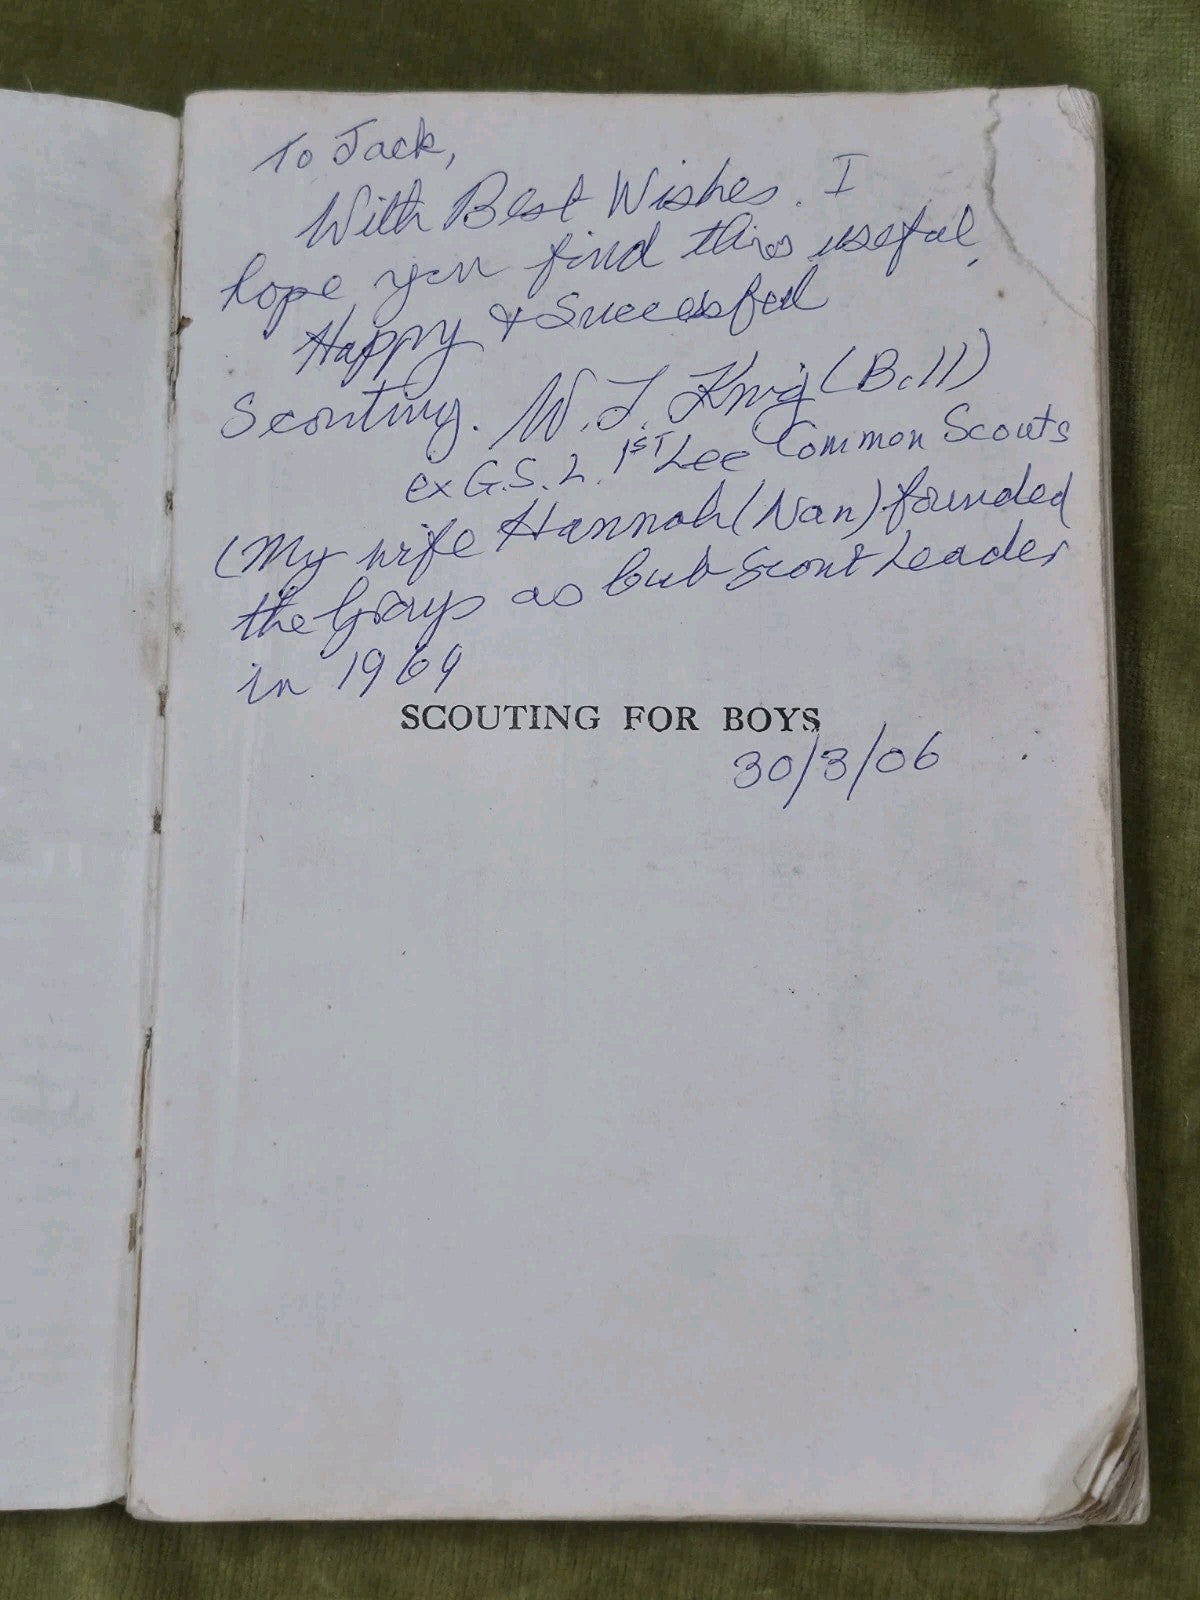 To Jack,
With Best Wishes. I
hope you find this useful,
Happy & Successful
Scouting. W. J. King (Bill)
ex G.S.L. 1ST Lee Common Scouts
(My wife Hannah (Nan) founded
the Group as Cub Scout Leader
in 1969
SCOUTING FOR BOYS
30/3/06